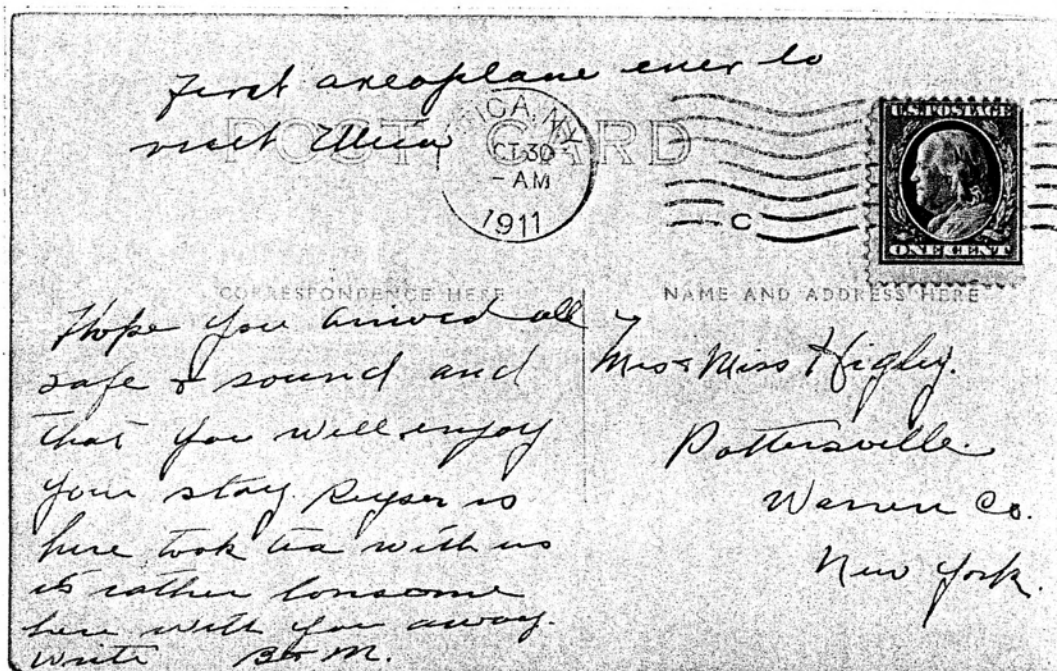 First areoplane ever to
visit Utica
POST CARD
UTICA, N.Y.
OCT 30
- AM
1911
C
U.S. POSTAGE
ONE CENT
CORRESPONDENCE HERE
NAME AND ADDRESS HERE
Hope you arrived all
safe & sound and
that you will enjoy
your stay. Keyser is
here took tea with us
its rather lonsome
here with you away.
Write B & M.
Mrs & Miss Higley.
Pottersville
Warren Co.
New York.